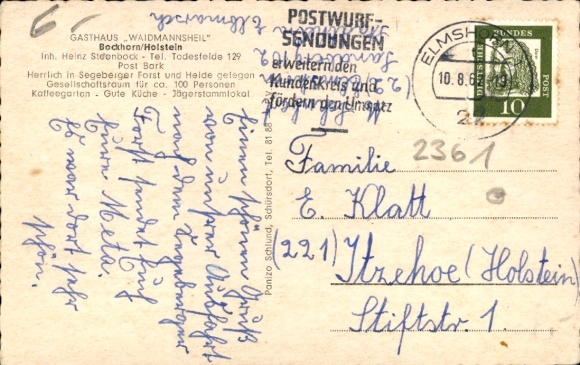 GASTHAUS „WAIDMANNSHEIL"
Bockhorn/Holstein
Inh. Heinz Sidenbock - Tel. Todesfelde 129
Post Bark
Herrlich in Segeberger Forst und Heide gelegen
Gesellschaftsraum für ca. 100 Personen
Kaffeegarten - Gute Küche - Jägerstammlokal
Einen schönen Gruß
von unsrer Ausfahrt
nach dem Segeberger
Forst sendet Euch
Eure Meta.
Es war dort sehr
schön.
Panizo Schlund, Schürsdorf, Tel. 81 88
POSTWURF-
SENDUNGEN
erweitern den
Kundenkreis und
fördern den Umsatz
ELMSHORN
10.8.6
DEUTSCHE BUNDESPOST
10
2361
Familie
E. Klatt
(221) Itzehoe (Holstein)
Stiftstr. 1.
Elbmarsch